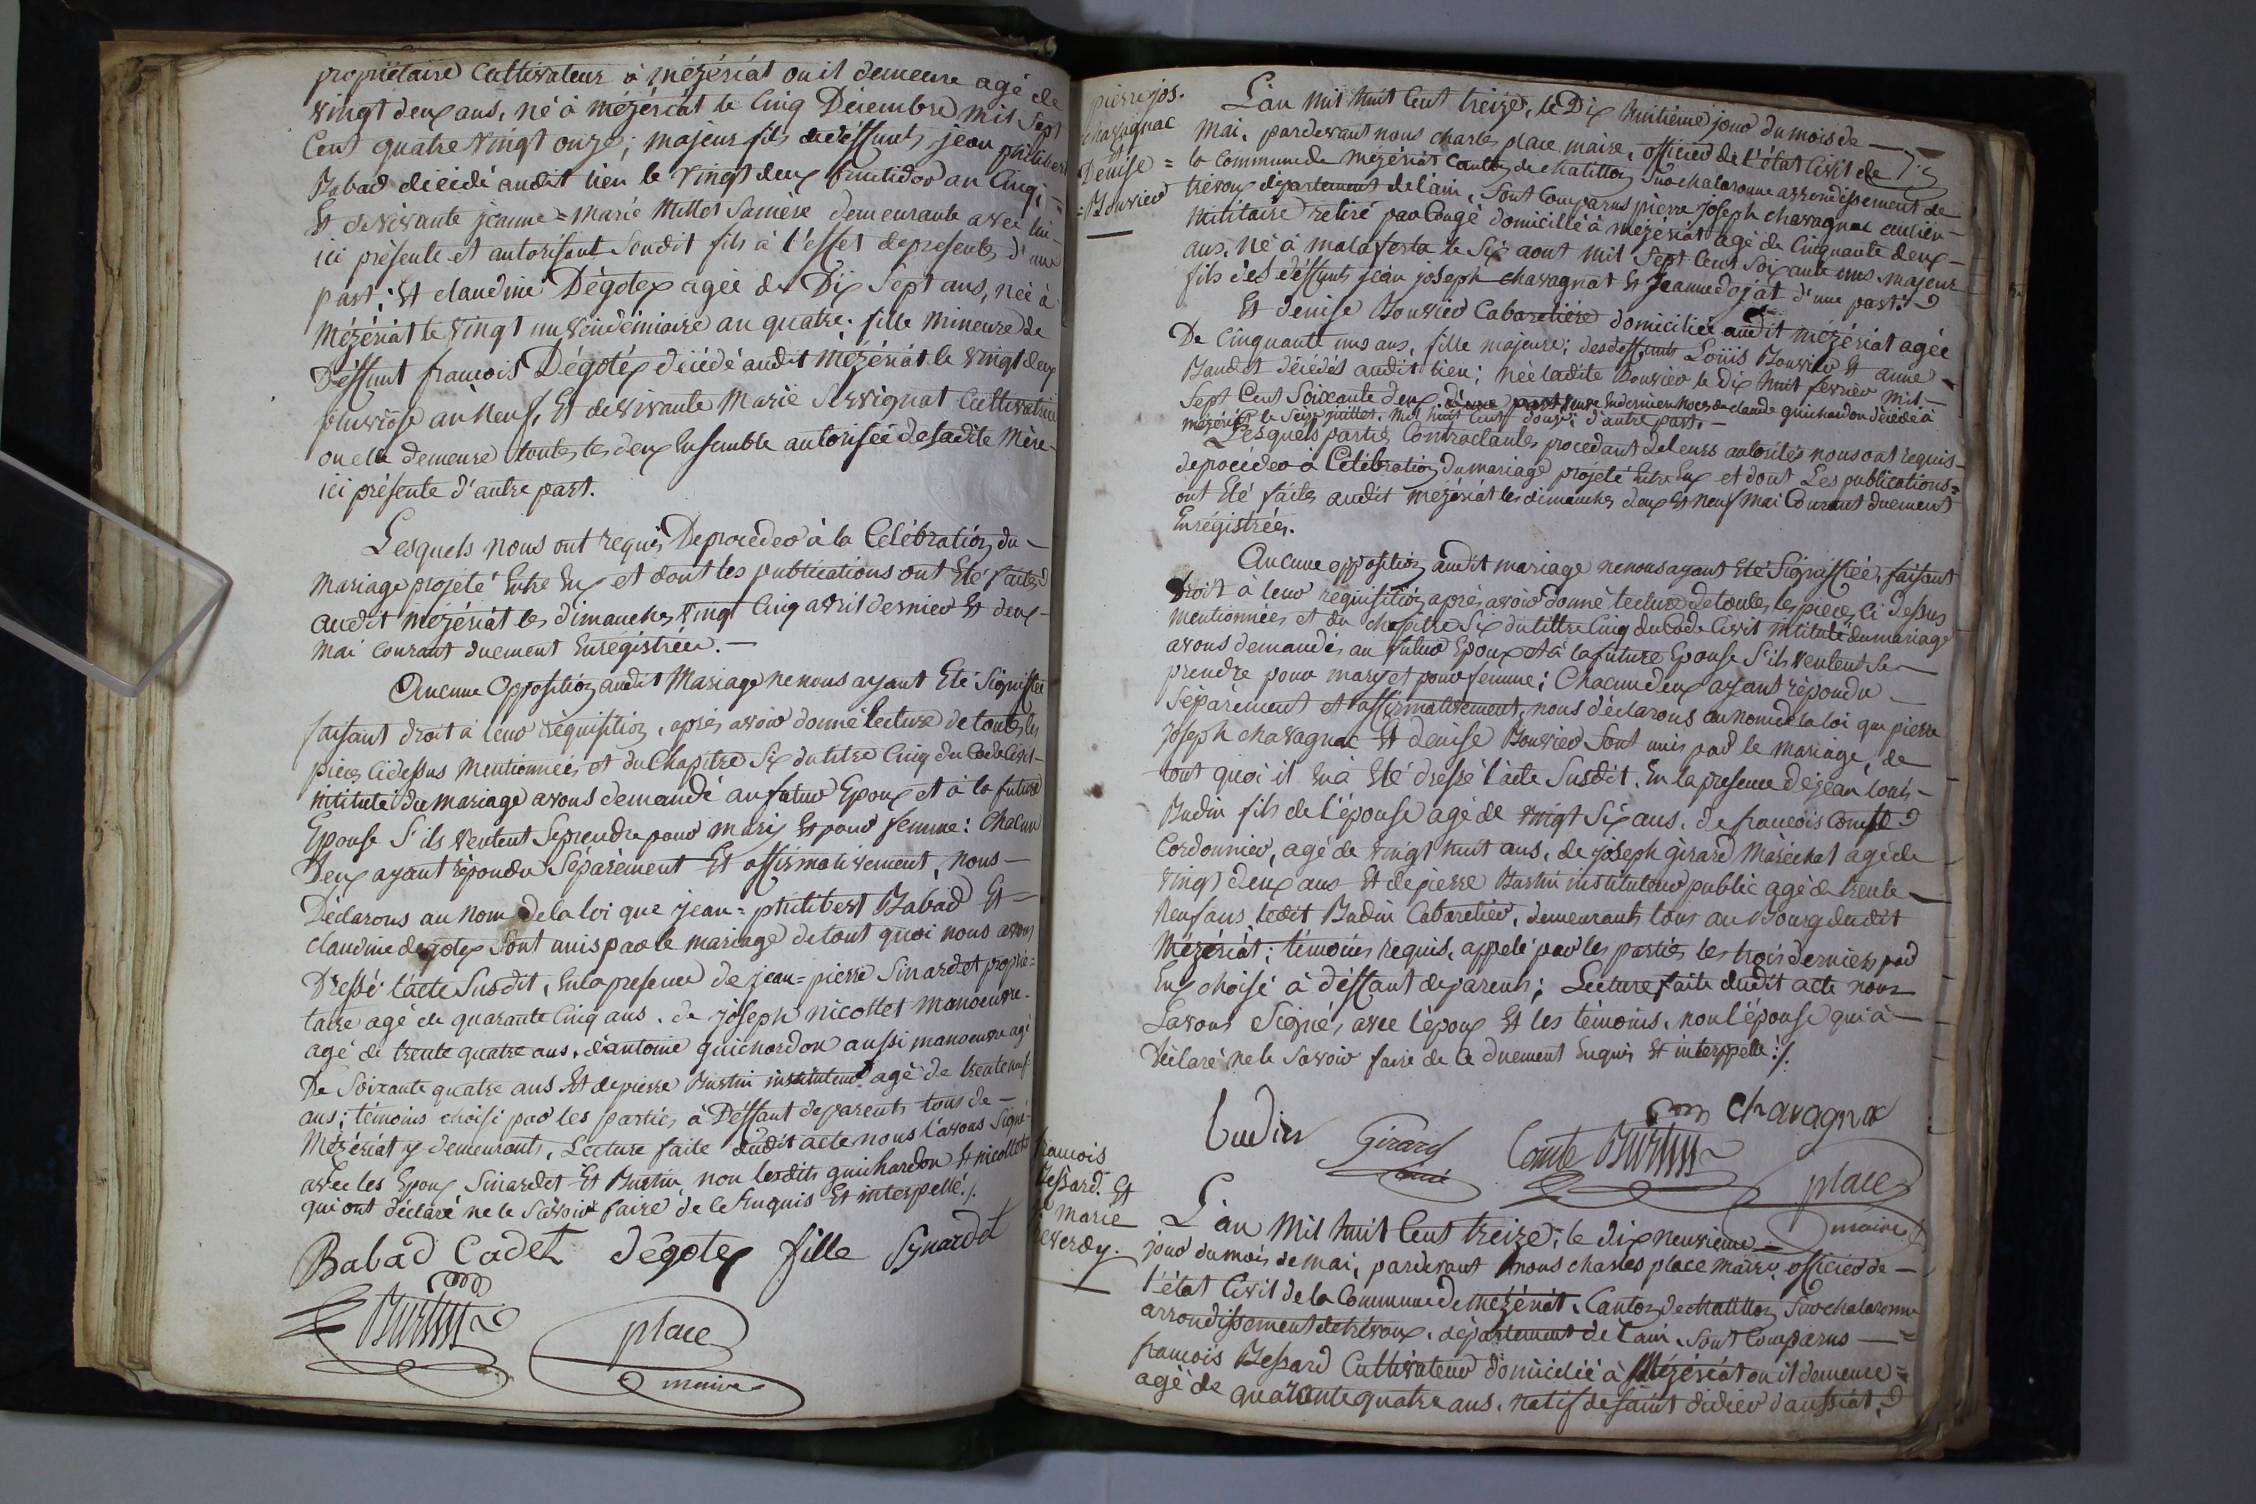 propriétaire Cultivateur à mézériat ou il demeure agé de
vingt deux ans, né à mézériat le Cinq Décembre mil Sept
Cent quatre vingt onze; majeur fils de déffunts jean philibert
Babad décédé audit lieu le vingt deux fructidor an Cinq; =
Et de vivante jeanne = Marie Millet Sa mère demeurante avec lui -
ici présente et autorisant Sondit fils à l'effet des presentes d'une
part; Et claudine Dégotex agée de Dix Sept ans, née à
Mézériat le vingt un vendémiaire an quatre; fille Mineure de
Déffunt francois Dégotex décédé audit Mézériat le vingt deux
pluviose an Neuf, Et de vivante Marie Servignat Cultivatrice
ou elle demeure toutes les deux Ensemble autorisée de sadite Mère -
ici présente d'autre part.
Lesquels nous ont requis De procéder à la Célébration du -
Mariage projeté Entre Eux et dont les publications ont Eté faites
audit Mézériat les dimanches vingt Cinq avril dernier Et deux -
Mai Courant duement Enrégistrées. -
Aucune Opposition audit Mariage ne nous ayant Eté Signifiée
faisant droit à leur réquisition, après avoir donné lecture de toutes les
pièces Cidessus Mentionnées et du Chapitre Six du titre Cinq du Code Civil -
intitulé du mariage avons demandé au futur Epoux et à la future
Epouse S'ils veulent Se prendre pour mary Et pour femme: Chacun
D'eux ayant répondu Séparément Et affirmativement, nous -
Déclarons au nom de la loi que jean = philibert Babad Et -
claudine degotex Sont unis par le mariage de tout quoi nous avons
Dressé l'acte Susdit, En la presence de jean = pierre Sinardet proprié =
taire agé de quarante Cinq ans, de joseph nicollet manoeuvre -
agé de trente quatre ans, d'antoine guichardon aussi manoeuvre agé
De Soixante quatre ans Et de pierre Burtin instituteur agé de trente neuf
ans; témoins choisi par les parties à Déffaut de parents tous de -
Mézériat y demeurants, Lecture faite dudit acte nous l'avons Signé -
avec les Epoux Sinardet Et Burtin non lesdits guichardon Et nicollet
qui ont déclaré ne le Savoir faire de Ce Enquis Et interpellé./.
Babad Cadet dégotex fille Synardet
Burtin place
maire
pierre jos.
chavagnac
Et
Denise =
= Bouvier
L'an Mil huit Cent treize, le Dix huitième jour du mois de -
Mai, pardevant nous charles place maire, officier de l'état Civil de
la Commune de Mézériat Canton de Chatillon Sur chalaronne arrondissement de
trévoux département de l'ain, Sont Comparus pierre joseph chavagnac ancien -
Militaire retiré par Congé domicilié à mézériat agé de Cinquante deux -
ans, né à malafreta le Six aout Mil Sept Cent Soixante uns, majeur
fils des déffunts jean joseph chavagnat Et Jeanne dojat d'une part.
Et denise Bouvier Cabaretière domiciliée audit Mézériat agée
De Cinquante uns ans, fille majeure; des deffunts Loüis Bouvier Et anne -
Baudet décédés audit lieu; née ladite Bouvier le Dix huit fevrier Mil -
Sept Cent Soixante deux, d'une part veuve En dernier Noces de claude guichardon décédé à
mézériat le Seize juillet Mil huit Cent douze; d'autre part. -
Lesquels parties Contractantes procédant de leurs autorités nous ont requis -
de procéder à Célébration du mariage projeté Entre Eux et dont Les publications =
ont Eté faites audit Mézériat les dimanches deux Et Neuf Mai Courant duement
Enrégistrées.
Aucune opposition audit mariage ne nous ayant Eté Signiffiée, faisant
droit à leur réquisition, après avoir donné lecture de toutes les pièces Ci dessus
Mentionnées et du chapitre Six du tittre Cinq du Code Civil intitulé du mariage
avons demandé au futur Epoux Et à la future Epouse S'ils veulent Se -
prendre pour mary et pour femme; Chacun d'eux ayant répondu -
Séparément et affirmativement, nous déclarons au nom de la loi que pierre
Joseph chavagnac Et denise Bouvier Sont unis par le mariage, de
tout quoi il En à Eté dressé l'acte Susdit. En la presence de jean louis -
Budin fils de l'épouse agé de vingt Six ans, de francois Comte
Cordonnier, agé de vingt huit ans, de joseph gérard Maréchal agé de
vingt deux ans Et de pierre Burtin instituteur public agé de trente -
Neuf ans, ledit Budin Cabaretier, demeurants tous au Bourg dudit
Mézériat; témoins requis, appelé par les parties les trois derniers par
Eux choisi à déffaut de parents; Lecture faite dudit acte nous
Lavons Signé, avec l'époux Et les témoins, non l'épouse qui à -
Déclaré ne le Savoir faire de Ce duement Enquis Et interppellé./.
chavagnac
budin Girard Comte Burtin
place
maire
francois
Bessard Et
marie
L'an Mil huit Cent treize, le dix neuvième =
jour du mois de mai, pardevant nous charles place maire officier de -
l'état Civil de la Commune de Mézériat, Canton de Chatillon Sur chalaronne
arrondissement de trévoux, département de l'ain, Sont Comparus - =
francois Bessard Cultivateur domicilié à Mézériat ou il demeure =
agé de quarente quatre ans, natif de saint didier d'aussiat,